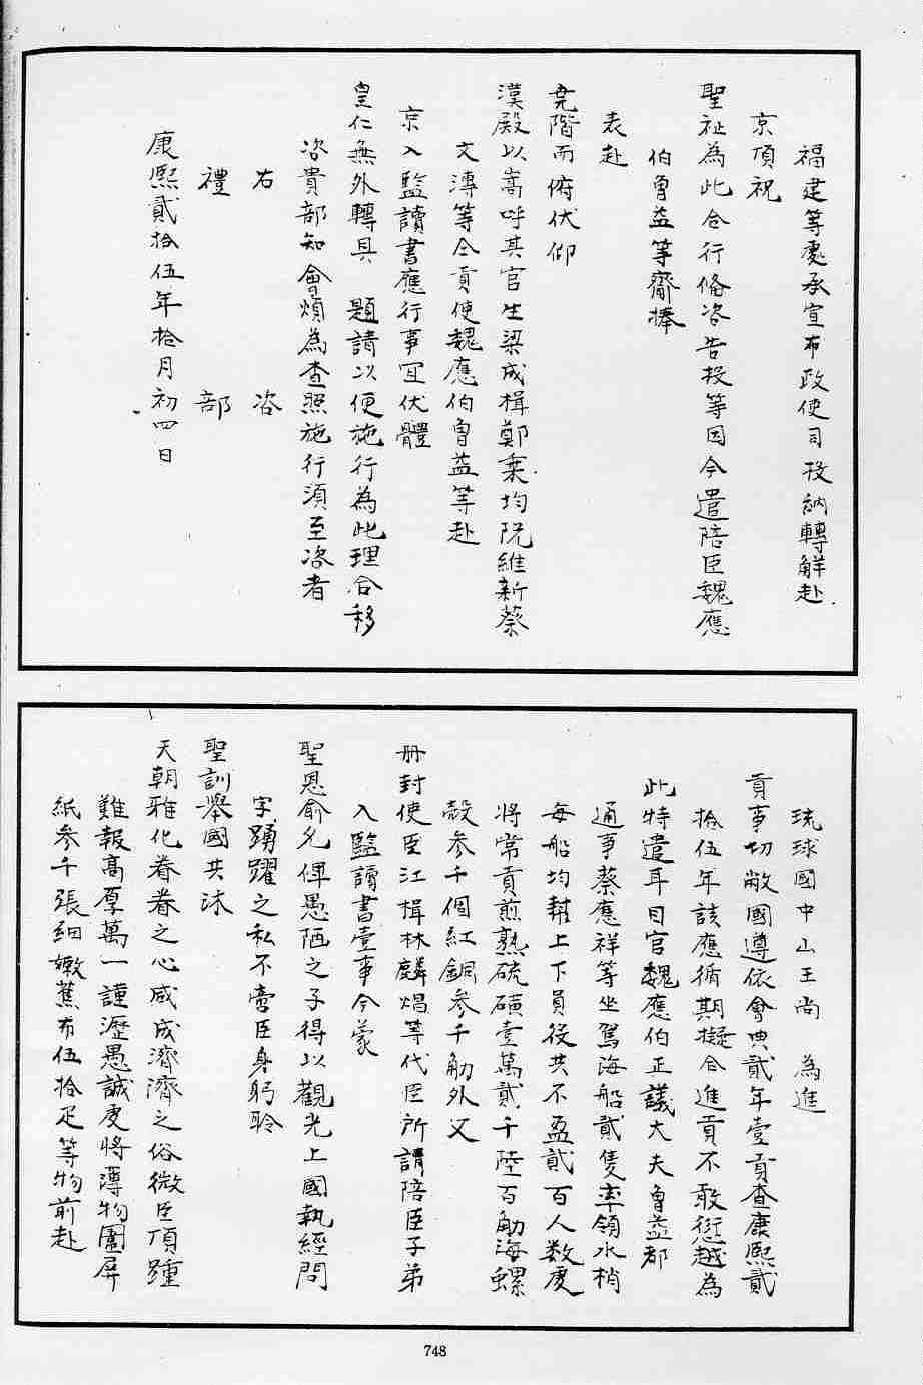 福建等處承宣布政使司投納轉解赴
京頂祝
聖祉為此合行備咨告投等因今遣陪臣魏應
伯曾益等齎捧
表赴
堯階而俯伏仰
漢殿以嵩呼其官生梁成楫鄭秉均阮維新蔡
文溥等仝貢使魏應伯曾益等赴
京入監讀書應行事宜伏體
皇仁無外轉具 題請以便施行為此理合移
咨貴部知會煩為查照施行須至咨者
右 咨
禮 部
康熙貳拾伍年拾月初四日
琉球國中山王尚 為進
貢事切敝國遵依會典貳年壹貢查康熙貳
拾伍年該應循期擬合進貢不敢愆越為
此特遣耳目官魏應伯正議大夫曾益都
通事蔡應祥等坐駕海船貳隻率領水梢
每船均幫上下員役共不盈貳百人數處
將常貢煎熟硫磺壹萬貳千陸百觔海螺
殼參千個紅銅參千觔外又
冊封使臣汪楫林麟焻等代臣所請陪臣子弟
入監讀書壹事今蒙
聖恩俞允俾愚陋之子得以觀光上國執經問
字踴躍之私不啻臣身躬聆
聖訓舉國共沐
天朝雅化眷眷之心咸成濟濟之俗微臣頂踵
難報高厚萬一謹瀝愚誠虔將薄物圍屏
紙參千張細嫩蕉布伍拾疋等物前赴
748